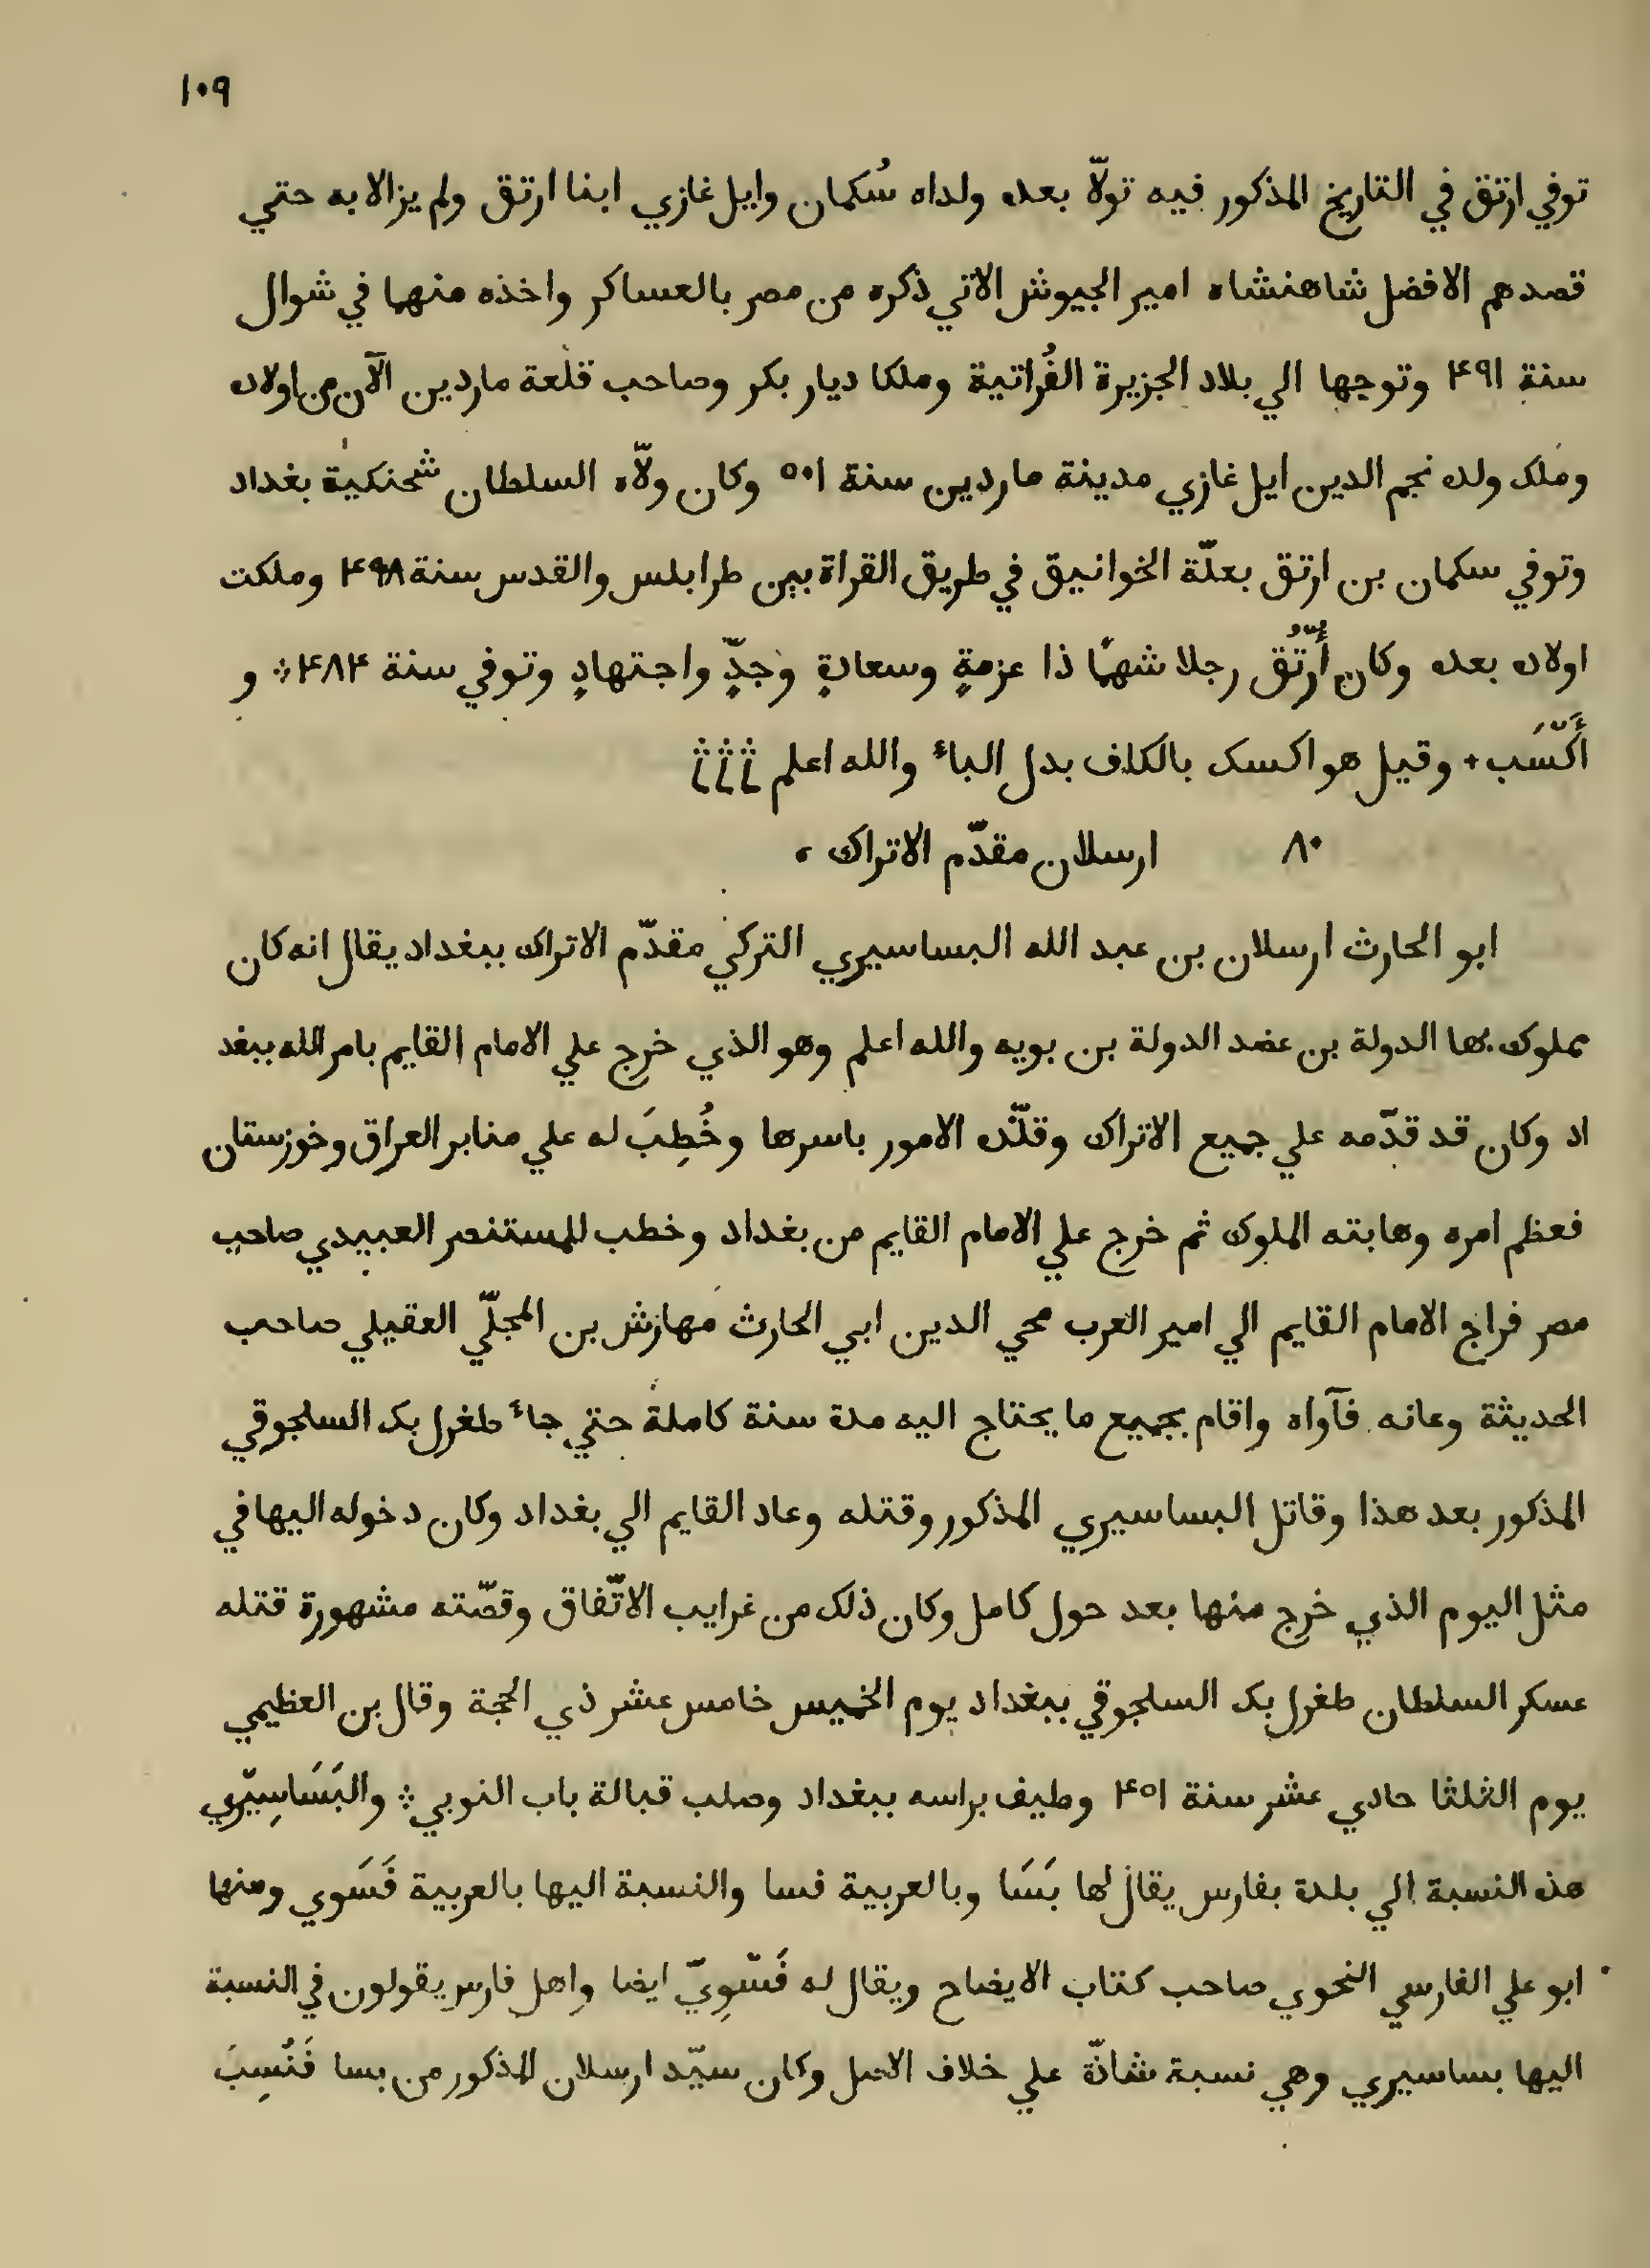 ١٠٩
توفي ارتق في التاريخ المذكور فيه تولّا بعده ولداه سُكمان وايل غازي ابنا ارتق ولم يزالا به حتي
قصدهم الافضل شاهنشاه امير الجيوش الاتي ذكره من مصر بالعساكر واخذه منهما في شوال
سنة ۴٩١ وتوجها الي بلاد الجزيرة الفُراتية وملكا ديار بكر وصاحب قلعة ماردين الآن من اولاده
وملك ولده نجم الدين ايل غازي مدينة ماردين سنة ٥٠١ وكان ولّاه السلطان شحنكية بغداد
وتوفي سكمان بن ارتق بعلّة الخوانيق في طريق القراة بين طرابلس والقدس سنة ۴٩٨ وملكت
اولاده بعده وكان أُرتُق رجلا شهمًا ذا عزمةٍ وسعادةٍ وجدٍّ واجتهادٍ وتوفي سنة ۴٨۴ و
أَكْسَب وقيل هو اكسك بالكاف بدل الباء والله اعلم
٨٠ ارسلان مقدّم الاتراك
ابو الحارث ارسلان بن عبد الله البساسيري التركي مقدّم الاتراك ببغداد يقال انه كان
مملوك بها الدولة بن عضد الدولة بن بويه والله اعلم وهو الذي خرج علي الامام القايم بامر الله ببغد
اد وكان قد قدّمه علي جميع الاتراك وقلّده الامور باسرها وخُطِبَ له علي منابر العراق وخوزستان
فعظم امره وهابته الملوك ثم خرج علي الامام القايم من بغداد وخطب للمستنصر العبيدي صاحب
مصر فراح الامام القايم الي امير العرب محي الدين ابي الحارث مهارش بن المجلّي العقيلي صاحب
الحديثة وعانه فآواه واقام بجميع ما يحتاج اليه مدة سنة كاملة حتي جاء طغرل بك السلجوقي
المذكور بعد هذا وقاتل البساسيري المذكور وقتله وعاد القايم الي بغداد وكان دخوله اليها في
مثل اليوم الذي خرج منها بعد حول كامل وكان ذلك من غرايب الاتّفاق وقصّته مشهورة قتله
عسكر السلطان طغرل بك السلجوقي ببغداد يوم الخميس خامس عشر ذي الحجة وقال بن العظيمي
يوم الثلثا حادي عشر سنة ۴٥١ وطيف براسه ببغداد وصلب قبالة باب النوبي والبَسَاسِيْري
هذه النسبة الي بلدة بفارس يقال لها بَسَا وبالعربية فسا والنسبة اليها بالعربية فَسَوي ومنها
ابو علي الفارسي النحوي صاحب كتاب الايضاح ويقال له فَسَوِيّ ايضا واهل فارس يقولون في النسبة
اليها بساسيري وهي نسبة شاذّة علي خلاف الاصل وكان سيّد ارسلان المذكور من بسا فَنُسِبَ